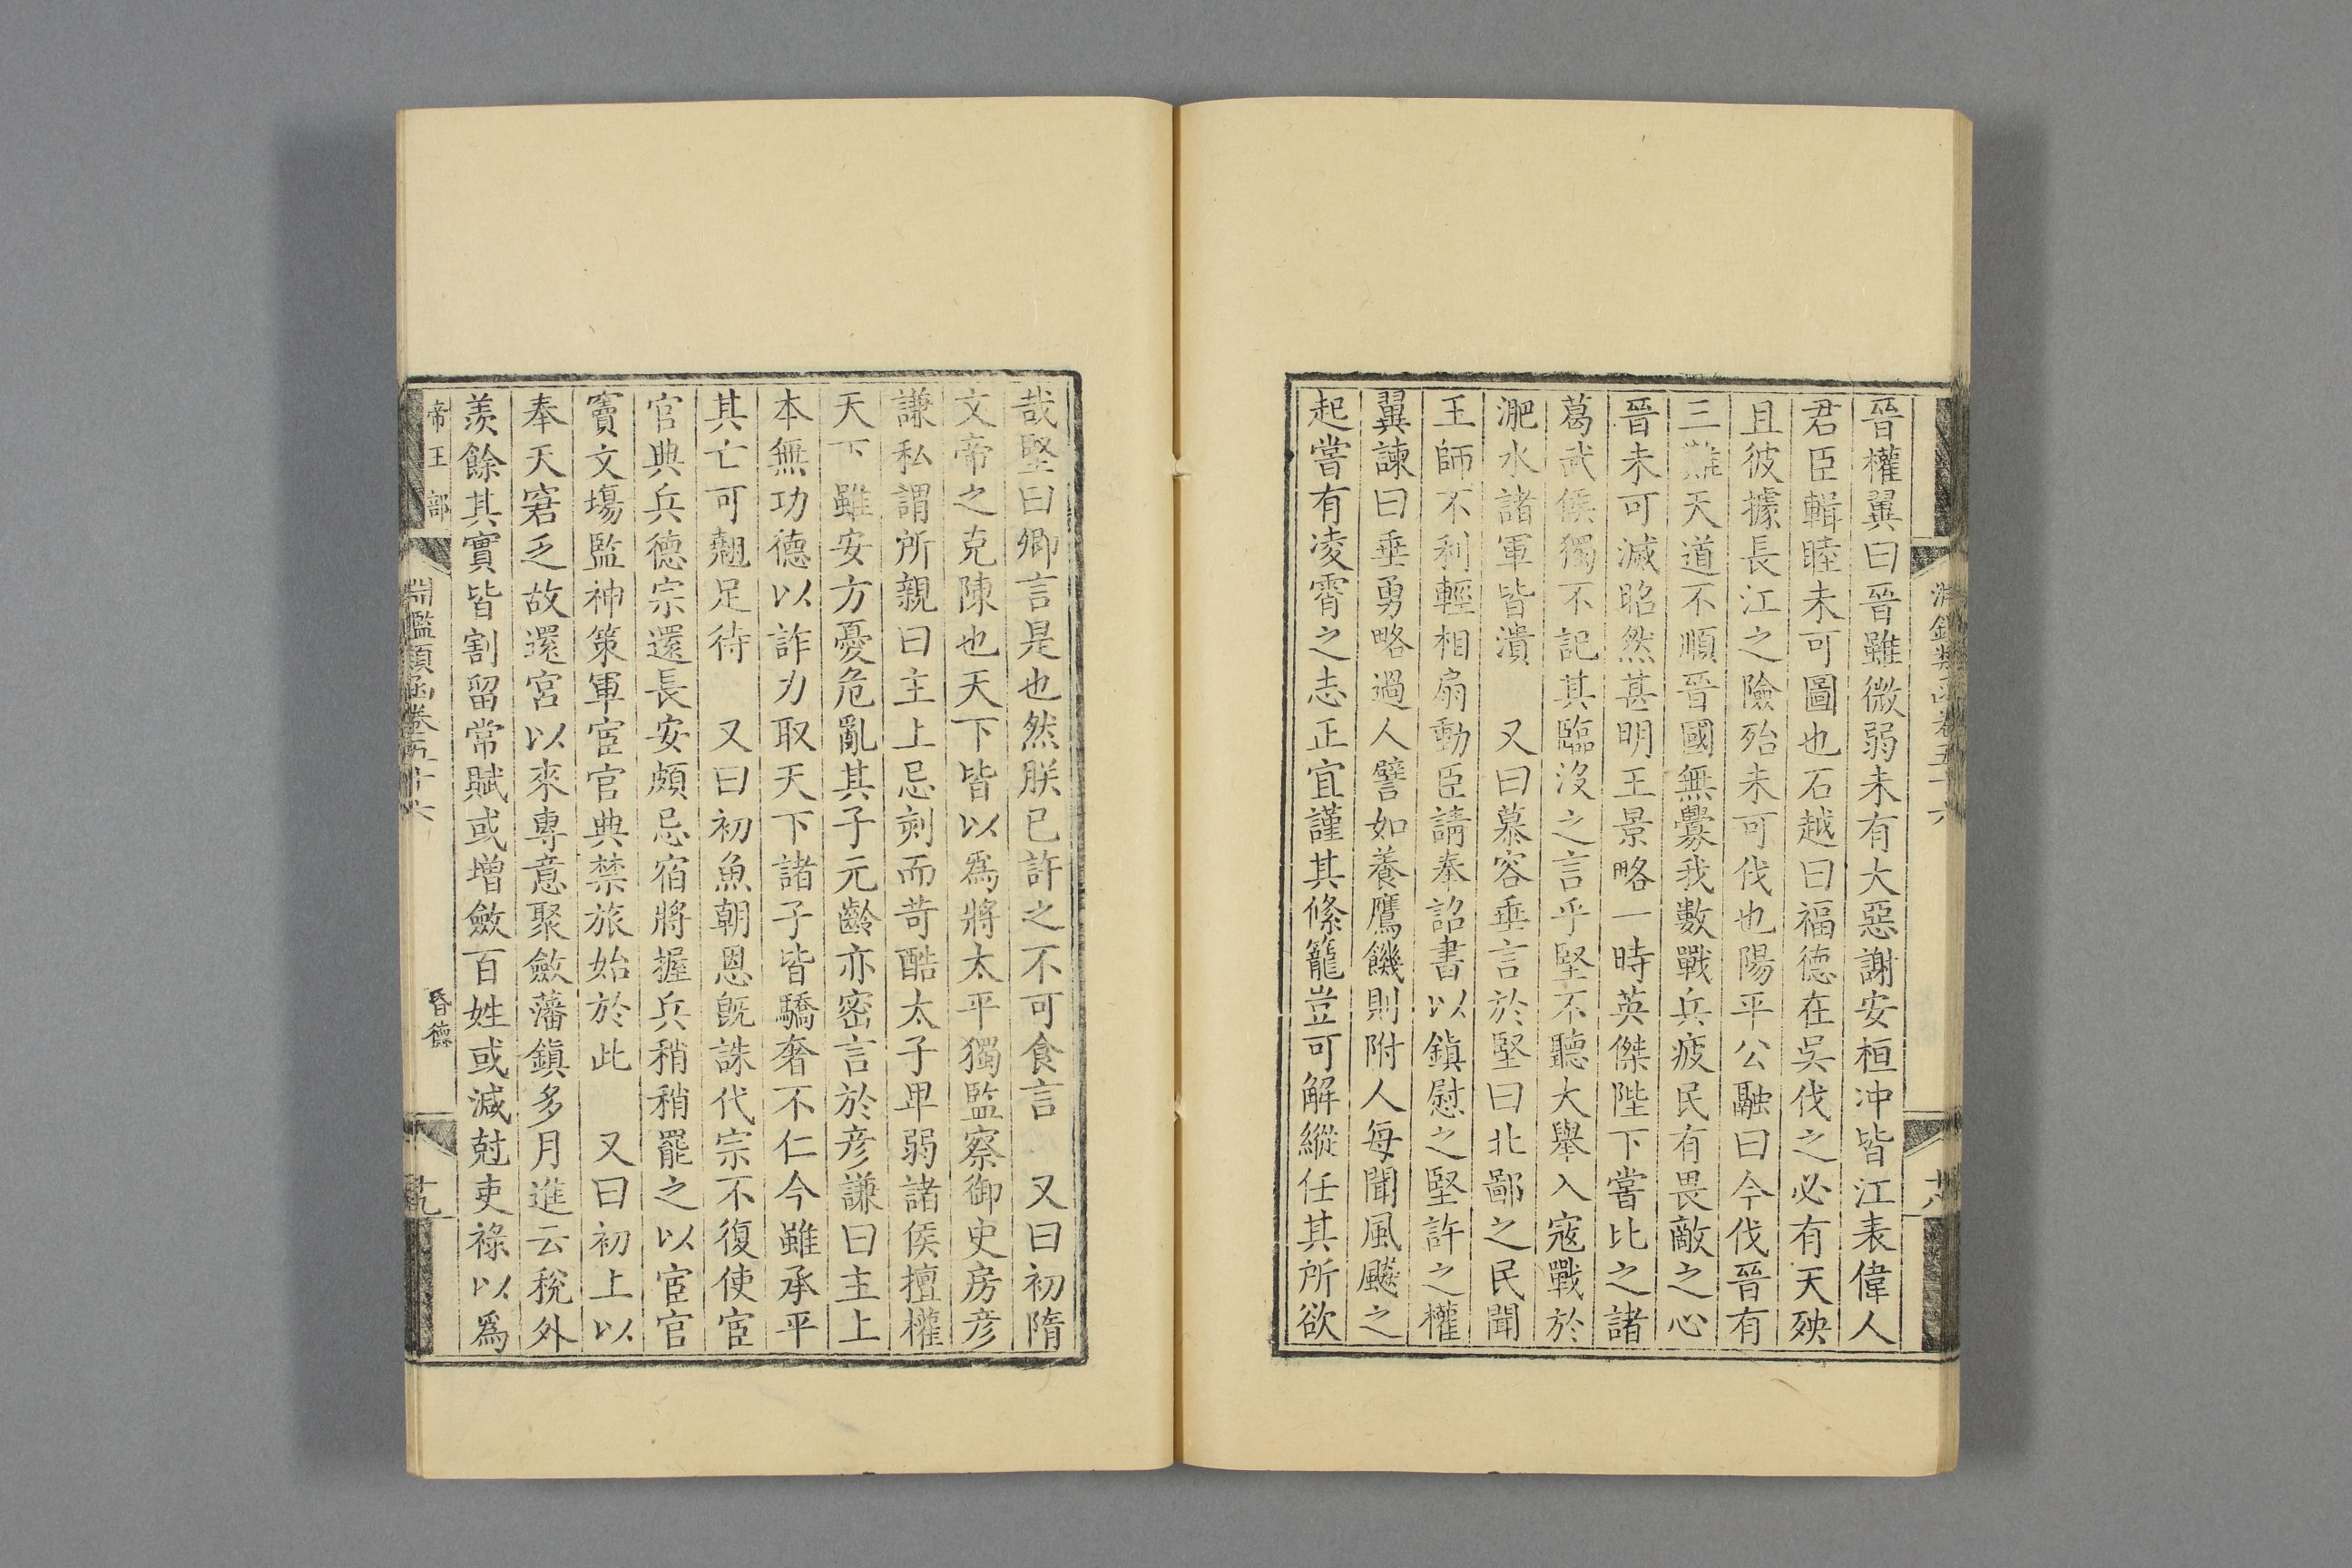 晉權翼曰晉雖微弱未有大惡謝安桓冲皆江表偉人
君臣輯睦未可圖也石越曰福德在吳伐之必有天殃
且彼據長江之險殆未可伐也陽平公融曰今伐晉有
三難天道不順晉國無釁我數戰兵疲民有畏敵之心
晉未可滅昭然甚明王景略一時英傑陛下嘗比之諸
葛武侯獨不記其臨沒之言乎堅不聽大舉入寇戰於
淝水諸軍皆潰　又曰慕容垂言於堅曰北鄙之民聞
王師不利輕相扇動臣請奉詔書以鎮慰之堅許之權
翼諫曰垂勇略過人譬如養鷹饑則附人每聞風飈之
起嘗有凌霄之志正宜謹其絛籠豈可解縱任其所欲
哉堅曰卿言是也然朕已許之不可食言　又曰初隋
文帝之克陳也天下皆以爲將太平獨監察御史房彦
謙私謂所親曰主上忌刻而苛酷太子卑弱諸侯擅權
天下雖安方憂危亂其子元齡亦密言於彦謙曰主上
本無功德以詐力取天下諸子皆驕奢不仁今雖承平
其亡可翹足待　又曰初魚朝恩旣誅代宗不復使宦
官典兵德宗還長安頗忌宿將握兵稍稍罷之以宦官
竇文場監神策軍宦官典禁旅始於此　又曰初上以
奉天窘乏故還宮以來專意聚斂藩鎮多月進云稅外
羨餘其實皆割留常賦或增斂百姓或減尅吏祿以爲
帝王部
淵鑑類函卷五十六
昏德